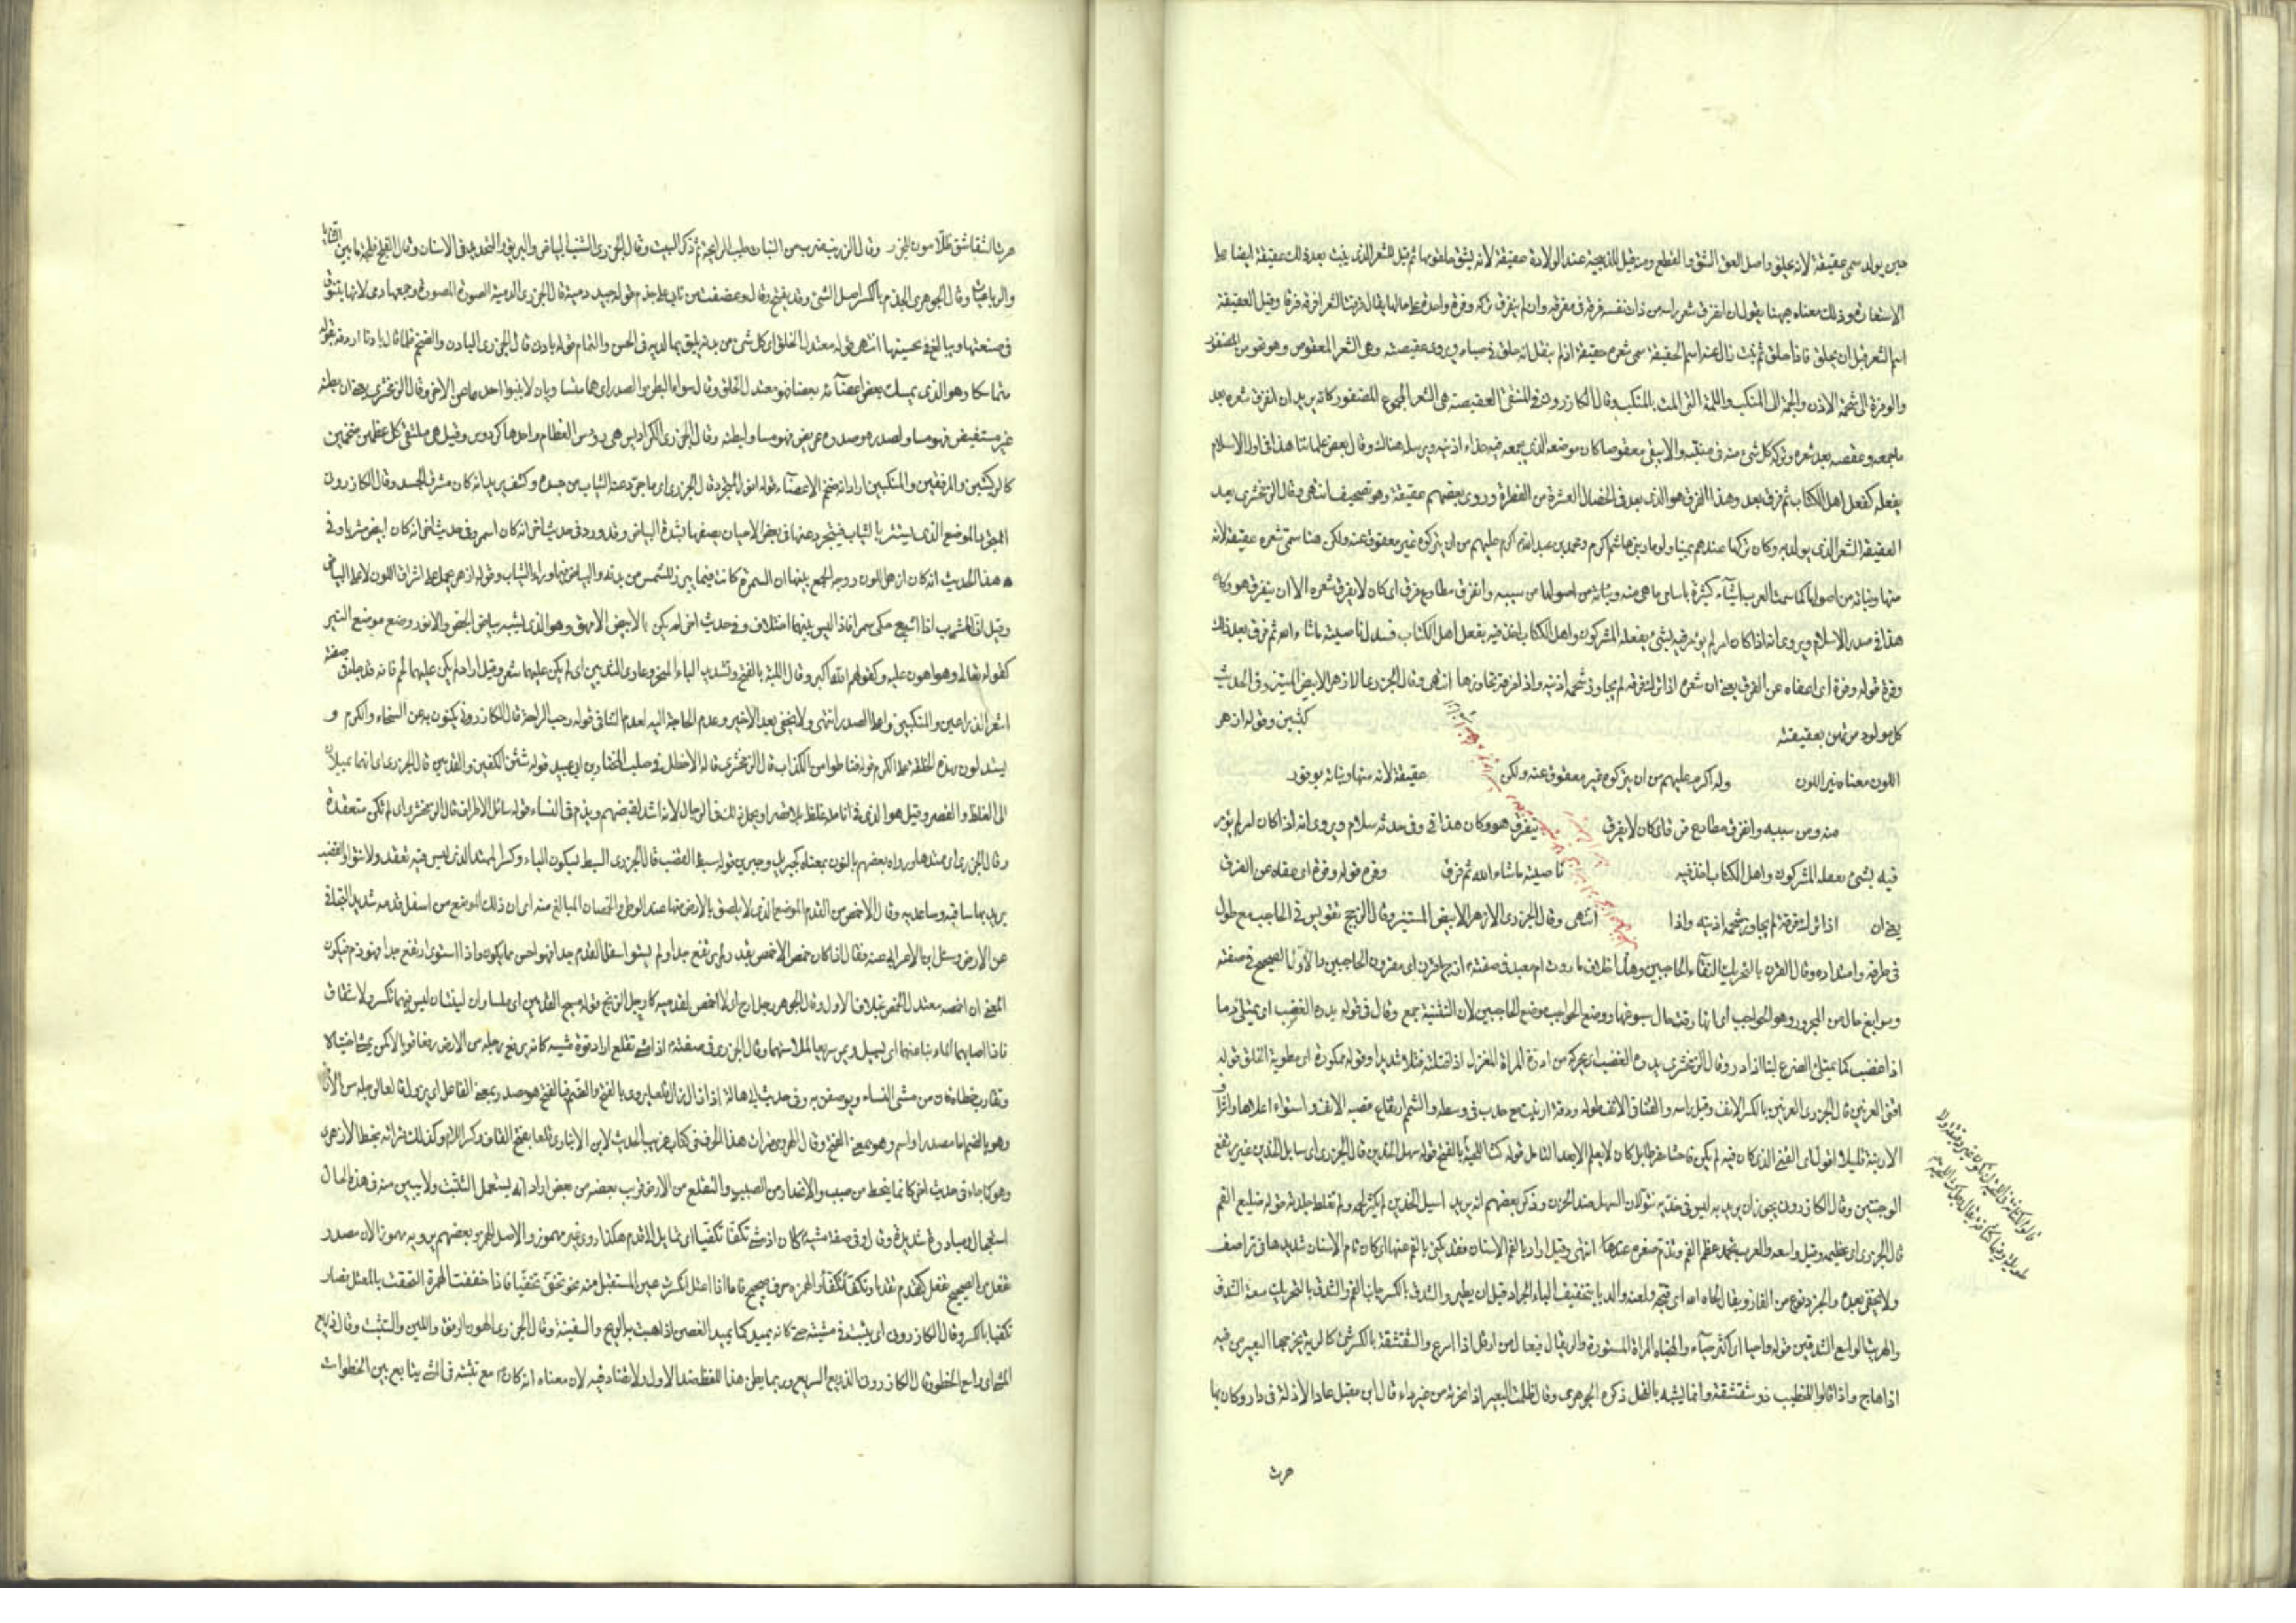 حين يولد سمى عقيقة لانه يحلق واصل العق الشق والقطع ومنه قيل للذبيحة عند الولادة عقيقة لانه يشق حلقومها ثم قيل للشعر الذى ينبت بعد ذلك عقيقة ايضا على
الاستعارة وذلك معناه ههنا يقول ان انفرق شعر راسه من ذات نفسه فرقه فى مفرقه وان لم ينفرق تركه وفرة واحدة على حالها يقال فرقت الشعر افرقه فرقا وقيل العقيقة
اسم الشعر قبل ان يحلق فاذا حلق ثم نبت زال عنه اسم العقيقة سمى شعره عقيقة اذ لم ينقل انه حلق فى صباه ويروى عقيصته وهى الشعر المعقوص وهو نحو من المضفور
والوفرة الى شحمة الاذن والجمة الى المنكب واللمة التى المت بالمنكب وقال الكازرونى فى المنتقى العقيصة هى الشعر المجموع المضفور كانه يريد ان انفرق شعره بعد
ما جمعه وعقصه بعد شعره وتركه كل شئ منه فى منبته والا يبقى معقوصا كان موضعه الذى يجمعه فيه حذاء اذنيه ويرسله هنالك وقال بعض علمائنا هذا فى اول الاسلام
يفعله كفعل اهل الكتاب ثم فرق بعد وهذا الفرق هو الذى يعد فى الخصال العشرة من الفطرة وروى بعضهم عقيقة وهو تصحيف انتهى وقال الزمخشرى بعد
العقيقة الشعر الذى يولد به وكان تركها عندهم عيبا ولوما وبنو هاشم اكرم ومحمد بن عبد الله اكرم عليهم من ان يتركوه غير معقوق عنه ولكن هندا سمى شعره عقيقة لانه
منها ونباته من اصولها كما سمت العرب اشياء كثيرة باسامى ما هى منه ونباته من اصولها من سببه وانفرق مطاوع فرق اى كان لا يفرق شعره الا ان ينفرق هو وكان
هذا فى صدر الاسلام ويروى انه اذا كان امر لم يؤمر فيه بشئ يفعله المشركون واهل الكتاب اخذ فيه بفعل اهل الكتاب فسدل ناصيته ما شاء الله ثم فرق بعد ذلك
وفرة قوله وفرة اى اعفاه عن الفرق يعنى ان شعره اذا ترك فرقه لم يجاوز شحمة اذنيه واذا فرقه تجاوزها انتهى وقال الجزرى الازهر الابيض المستنير وفى الحديث
كل مولود مرتهن بعقيقته كثيبين وقوله ازهر
اللون معناه منير اللون وله اكرم عليهم من ان يتركوه غير معقوق عنه ولكن عقيقة لانه منها ونباته
منه ومن سببه وانفرق مطاوع فرق اى كان لا يفرق ينفرق هو وكان هذا فى وفى سلام ويروى انه اذا كان امر لم يؤمر
فيه بشئ يفعله المشركون واهل الكتاب اخذ فيه ناصيته ما شاء الله ثم فرق وفرة قوله وفرة اى اعفاه عن الفرق
يعنى ان اذا ترك فرقه لم يجاوز شحمة اذنيه واذا انتهى وقال الجزرى الازهر الابيض المستنير وقال الزجج تقويس فى الحاجب مع طول
فى طرفه وامتداده وقال القرن بالتحريك التقاء الحاجبين وهذا خلاف ما روت ام معبد فى صفته ازج اقرن اى مقرون الحاجبين والاول الصحيح فى صفته
وسوابغ حال من المجرور وهو الحواجب اى انها رقت حال سبوغها ووضع الحواجب موضع الحاجبين لان التثنية جمع وقال فى قوله يدره الغضب اى يمتلئ دما
اذا غضب كما يمتلئ الضرع لبنا اذا در وقال الزمخشرى يدره الغضب اى يحركه من ادرة المراة المغزل اذا فتلته فتلا شديدا وقوله ممكورة اى مطوية الخلق قوله
اقنى العرنين قال الجزرى العرنين بالكسر الانف وقيل راسه والقنا فى الانف طوله ورقة ارنبته مع حدب فى وسطه والشمم ارتفاع قصبة الانف واستواء اعلاها واشراف
الارنبة قليلا اقول اى القنى الذى كان فيه لم يكن فاحشا مفرطا بل كان لا يعلم الا بعد التامل قوله كث اللحية بالفتح قوله سهل الخدين قال الجزرى اى سائل الخدين غير مرتفع
الوجنتين وقال الكازرونى يجوز ان يريد به ليس فى خديه نتؤ لان السهل ضد الحزن وذكر بعضهم انه يريد اسيل الخدين لم يكثر لحمه ولم تغلظ جلدته قوله ضليع الفم
قال الجزرى اى عظيمه وقيل واسعه والعرب تحمد عظم الفم وتذم صغره انتهى وقيل اراد بالفم الاسنان فقد يكنى بالفم عنها اى كان تام الاسنان شديدها فى تراصف
ولا يخفى بعده
والهريت الواسع الشدقين قوله واحيا اى اكثر حياء والمخباة المراة المستورة والشقشقة بالكسر شئ كالرية يخرجها البعير من فيه
اذا هاج واذا قالوا للخطيب ذو شقشقة وانما يشبه بالفحل ذكره الجوهرى وقال ظلمت البعير اذا نحرته من غير داء قال ابن مقبل عاد الاذلة فى دار وكان بها
هرت
هرت الشقاشق ظلامون للجزر وقال الزرنب ضرب من النبات طيب الرايحة ثم ذكر البيت وقال الجزرى الشنب البياض والبريق والتحديد فى الاسنان وقال الفلج فرجة ما بين الثنايا
والرباعيات وقال الجوهرى الجذم بالكسر اصل الشئ وقد يفتح وقال وعضضت من نابى على جذم قوله جيد دمية قال الجزرى الدمية الصورة المصورة وجمعها دمى لانها يتنوق
فى صنعتها ويبالغ فى تحسينها انتهى قوله معتدل الخلق اى كل شئ من بدنه يليق بما لديه فى الحسن والتمام قوله بادن قال الجزرى البادن والضخم فلما قال بادنا اردفه بقوله
متماسكا وهو الذى يمسك بعض اعضائه بعضا فهو معتدل الخلق وقال سواء البطن والصدر اى هما متساويان لا ينبو احدهما عن الاخر وقال الزمخشرى يعنى ان بطنه
غير مستفيض فهو مساو لصدره وصدره عريض فهو مساو لبطنه وقال الجزرى الكراديس هى رؤس العظام واحدها كردوس وقيل هى ملتقى كل عظمين ضخمين
كالركبتين والمرفقين والمنكبين اراد انه ضخم الاعضاء قوله انور المتجرد قال الجزرى اى ما جرد عنه الثياب من جسده وكشف يريد انه كان مشرق الجسد وقال الكازرونى
المتجرد الموضع الذى يستتر بالثياب فيتجرد عنها فى بعض الاحيان يصفها بشدة البياض وقد ورد فى حديث اخر انه كان اسمر وفى حديث اخر انه كان ابيض مشربا وفى
هذا الحديث انه كان ازهر اللون ووجه الجمع بينها ان السمرة كانت فيما يبرز للشمس من بدنه والبياض فيما وراء الثياب وقوله ازهر يحمل على اشراق اللون لا على البياض
وقيل ان المشرب اذا اشبع حكى سمرة فاذا ليس بينهما اختلاف وفى حديث اخر لم يكن بالابيض الامهق وهو الذى يشبه بياض الجص والانور وضع موضع النير
كقوله تعالى وهو اهون عليه وكقولهم الله اكبر وقال اللبة بالفتح وتشديد الباء المنحر وعارى الثديين اى لم يكن عليهما شعر وقيل اراد لم يكن عليهما لحم فانه قد جاء فى صفته
اشعر الذراعين والمنكبين واعلا الصدر انتهى ولا يخفى بعد الاخير وعدم الحاجة اليه لعدم التنافى قوله رحب الراحة قال الكازرونى يكنون به عن السخاء والكرم و
يستدلون بهذه الخلقة على الكرم قوله شثن الكفين والقدمين قال الجزرى اى انهما يميلان
الى الغلظ والقصر وقيل هو الذى فى انامله غلظ بلا قصر ويحمد ذلك فى الرجال لانه اشد لقبضهم ويذم فى النساء قوله سائل الاطراف قال الزمخشرى اى لم تكن متعقدة
وقال الجزرى اى ممتدها ورواه بعضهم بالنون بمعناه كجبريل وجبرين قوله سبط القصب قال الجزرى السبط بسكون الباء وكسرها الممتد الذى ليس فيه تعقد ولا نتؤ والقصب
يريد بها ساقيه وساعديه وقال الاخمص من القدم الموضع الذى لا يلصق بالارض منها عند الوطى والخمصان المبالغ منه اى ان ذلك الموضع من اسفل قدمه شديد التجافى
عن الارض وسئل ابن الاعرابى عنه فقال اذا كان خمص الاخمص بقدر ولم يرتفع جدا ولم يستو اسفل القدم جدا فهو احسن ما يكون واذا استوى او ارتفع جدا فهو ذم فيكون
المعنى ان اخمصه معتدل الخمص بخلاف الاول وقال الجوهرى رجل ارح اى لا اخمص لقدميه كارجل الزنج قوله مسيح القدمين اى ملساوان لينتان ليس فيهما تكسر ولا شقاق
فاذا اصابهما الماء نبا عنهما اى يسيل ويمر سريعا لملاستهما وقال الجزرى فى صفته اذا مشى تقلع اراد قوة مشيه كانه يرفع رجليه من الارض رفعا قويا لا كمن يمشى اختيالا
وتقارب خطاه فان ذلك من مشى النساء ويوصفن به وفى حديث ابى هالة اذا زال زال قلعا يروى بالفتح والضم فبالفتح هو مصدر بمعنى الفاعل اى يزول قالعا لرجله من الارض
وهو بالضم اما مصدر او اسم وهو بمعنى الفتح وقال الهروى قرات هذا الحرف فى كتاب غريب الحديث لابن الانبارى قلعا بفتح القاف وكسر اللام وكذلك قراته بخط الازهرى
وهو كما جاء فى حديث اخر كانما ينحط من صبب والانحدار من الصبب والتقلع من الارض قريب بعضه من بعض اراد انه يستعمل التثبت ولا يبين منه فى هذه الحال
استعجال ومبادرة شديدة وقال فى صفة مشيه كان اذا مشى تكفى تكفيا اى تمايل الى قدم هكذا روى غير مهموز والاصل الهمز وبعضهم يرويه مهموزا لان مصدر
تفعل من الصحيح تفعل كتقدم تقدما وتكفا تكفؤا والهمزة حرف صحيح فاما اذا اعتل انكسرت عين المستقبل منه نحو تخفى تخفيا فاذا خففت الهمزة التحقت بالمعتل فصار
تكفيا بالكسر وقال الكازرونى اى يتثبت فى مشيته حتى كانه يميد كما يميد الغصن اذا هبت به الريح والسفينة وقال الجزرى الهون الرفق واللين والتثبت وقال ذريع
المشى اى واسع الخطو وقال الكازرونى الذريع السريع وربما يظن هذا اللفظ ضد الاول ولا تضاد فيه لان معناه انه كان مع تثبته فى المشى يتابع بين الخطوات